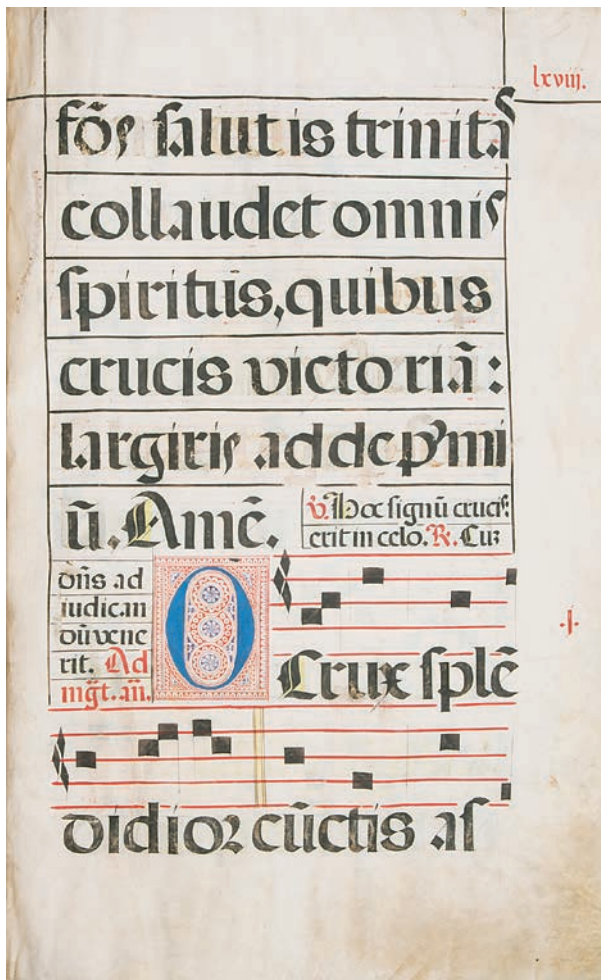 lxviij.
fōs salutis trinitas
collaudet omnis
spiritūs, quibus
crucis victoriā:
largiris adde p̄mi
ū. Amē.
℣. Hoc signū crucis
erit in celo. ℟. Cuz
dn̄s ad
iudican
dū vene
rit. Ad
mg̅t. an̄.
O
Crux splē
·j·
didior cūctis as